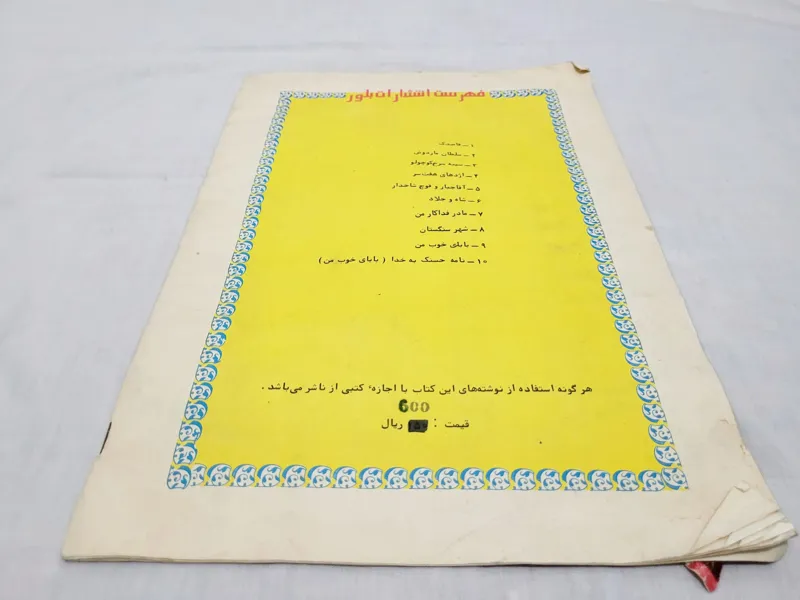 فهرست انتشارات بلور
۱ – قاصدک
۲ – سلطان ماردوش
۳ – سینه سرخ کوچولو
۴ – اژدهای هفت‌سر
۵ – آقاجبار و قوچ شاخدار
۶ – شاه و جلاد
۷ – مادر فداکار من
۸ – شهر سنگستان
۹ – بابای خوب من
۱۰ – نامه حسنک به خدا ( بابای خوب من )
هرگونه استفاده از نوشته‌های این کتاب با اجازهٔ کتبی از ناشر می‌باشد .
600
قیمت : ریال